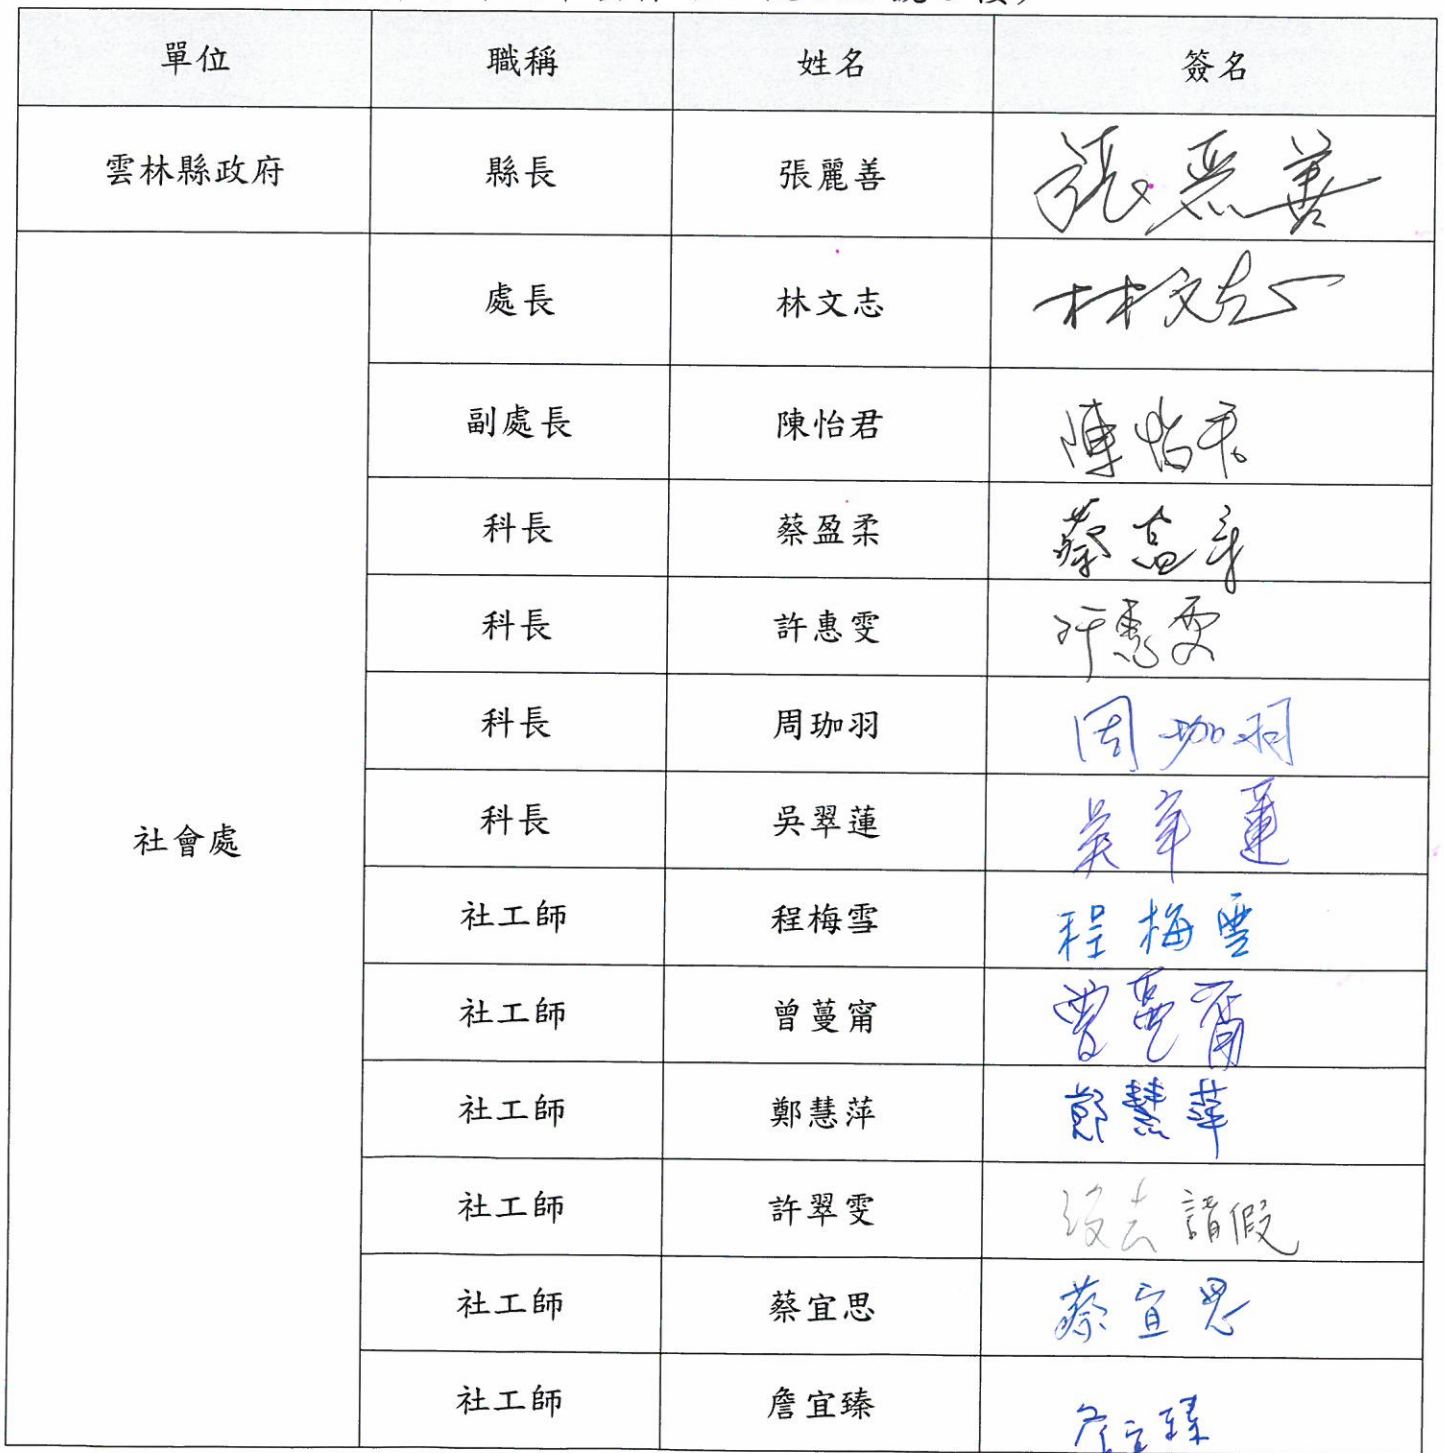 單位 職稱 姓名 簽名
雲林縣政府 縣長 張麗善 張麗善
處長 林文志 林文志
副處長 陳怡君 陳怡君
科長 蔡盈柔 蔡盈柔
科長 許惠雯 許惠雯
科長 周珈羽 周珈羽
社會處 科長 吳翠蓮 吳翠蓮
社工師 程梅雪 程梅雪
社工師 曾蔓甯 曾蔓甯
社工師 鄭慧萍 鄭慧萍
社工師 許翠雯 請假
社工師 蔡宜思 蔡宜思
社工師 詹宜臻 詹宜臻